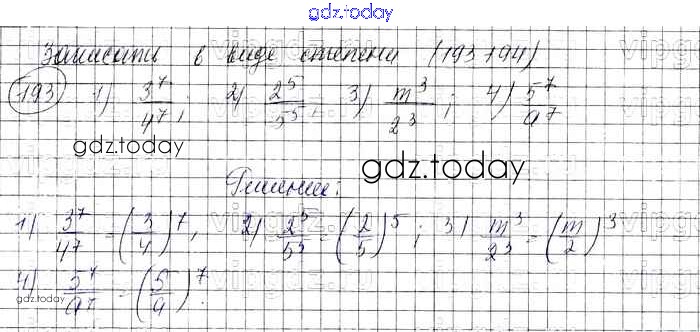 gdz.today
Записать в виде степени (193, 194)
193 1) 3⁷/4⁷, 2) 2⁵/5⁵, 3) m³/2³; 4) 5⁷/a⁷
gdz.today
gdz.today
Решение:
1) 3⁷/4⁷ = (3/4)⁷, 2) 2⁵/5⁵ = (2/5)⁵; 3) m³/2³ = (m/2)³
4) 5⁷/a⁷ = (5/a)⁷.
gdz.today